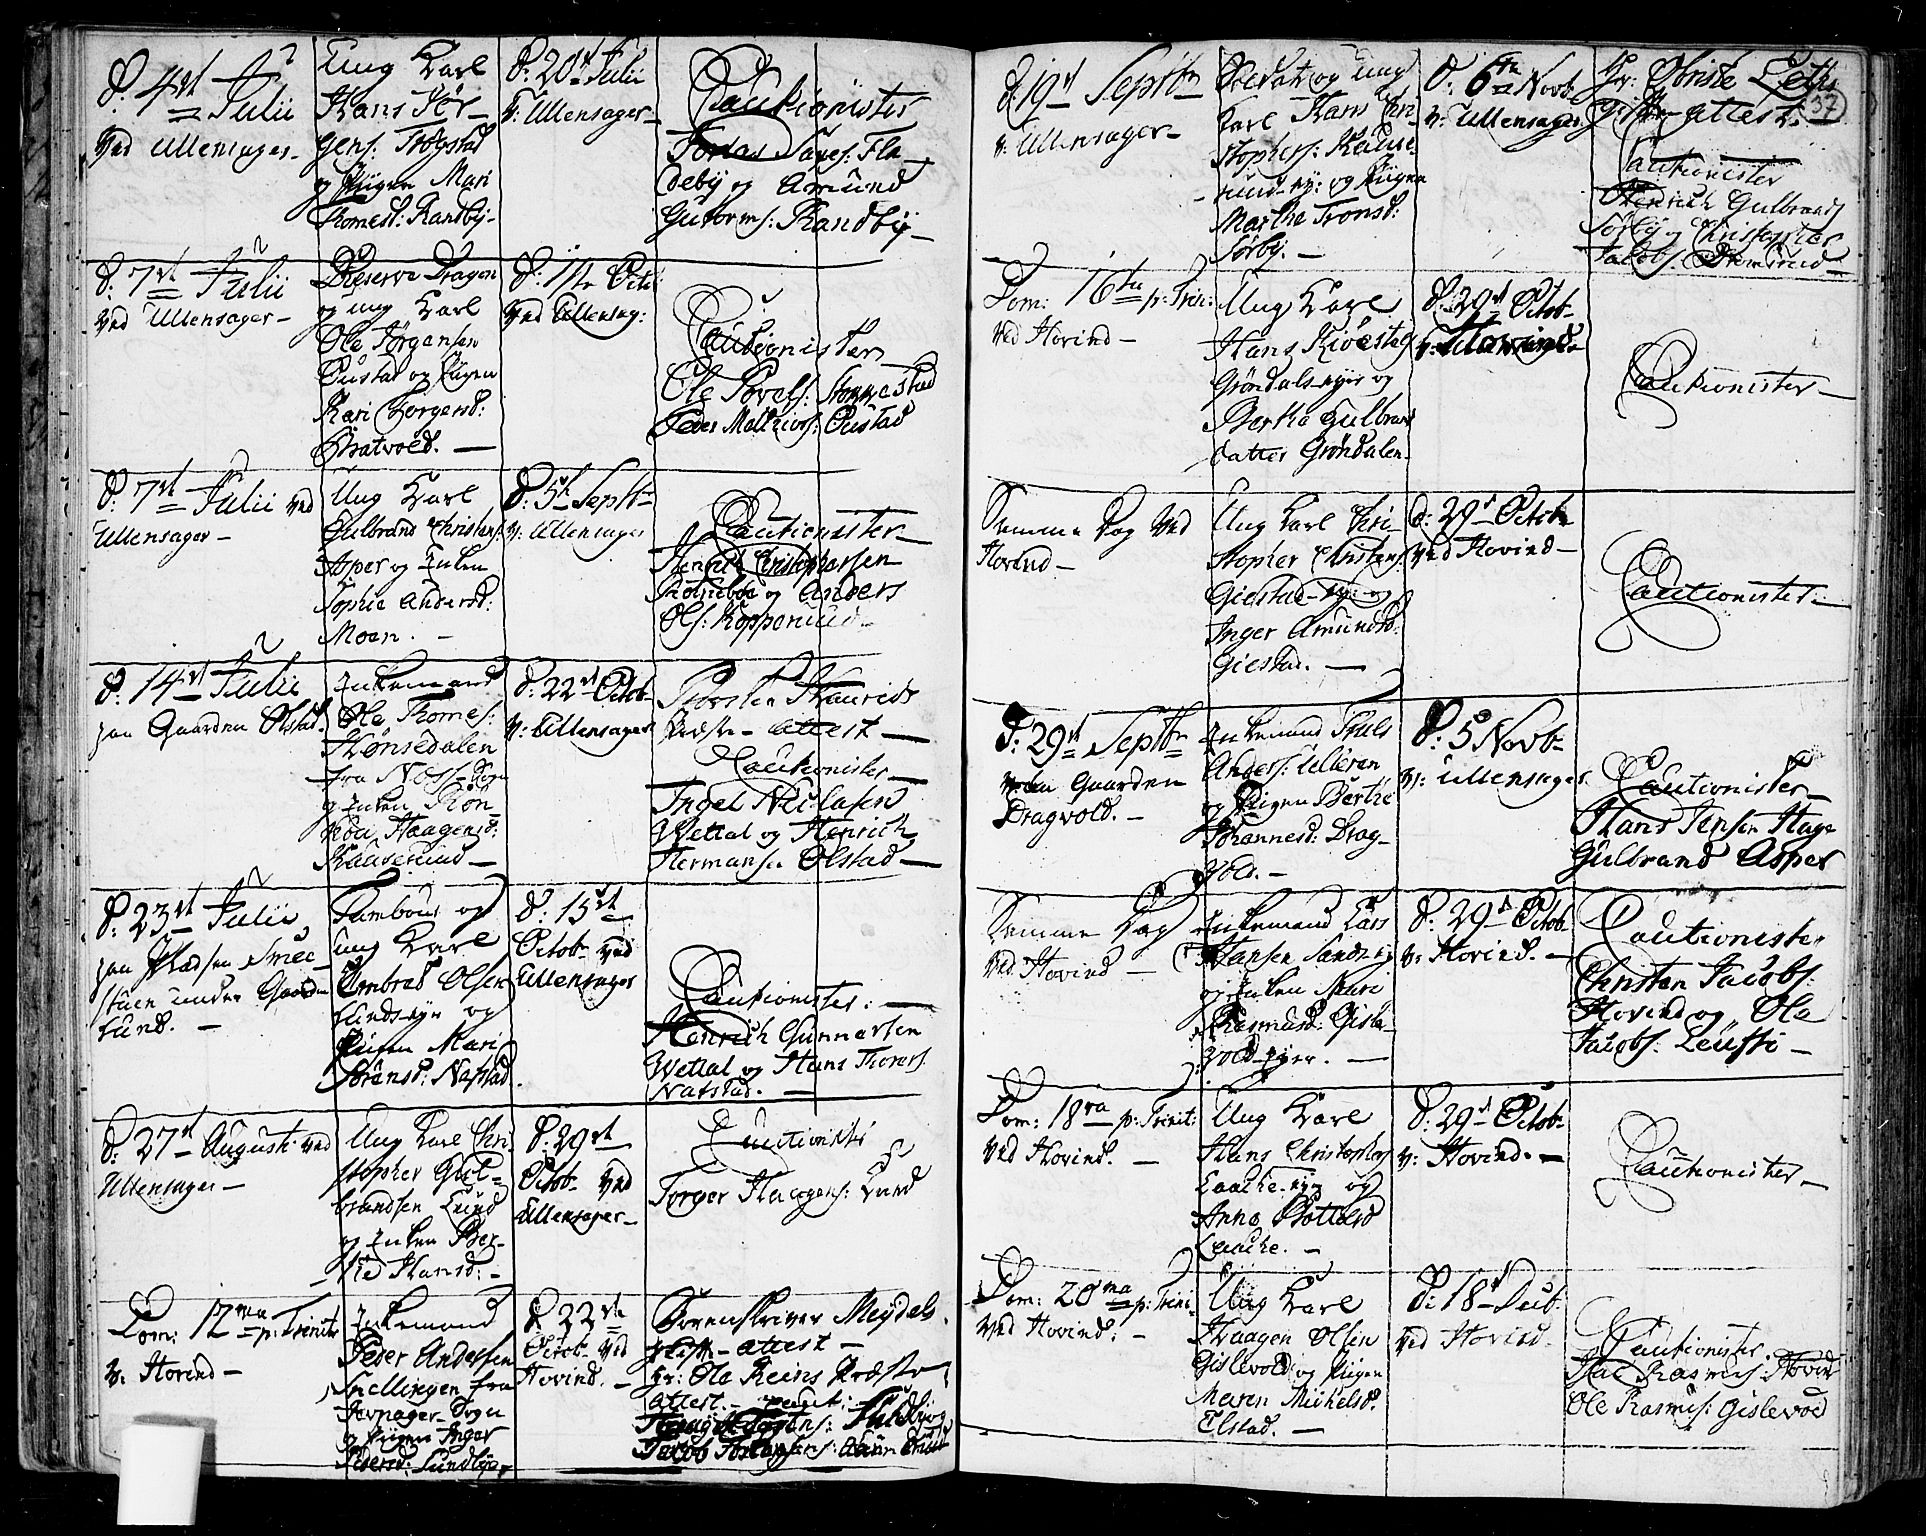 d: 4de Julii
Ved Ullensager
Ung Karl
Hans Jör-
gens: Trögstad
og Pigen Mari
Thomesd: Randby-
d: 20de Julii
v: Ullensager
Cautionister
Tortas Fla-
deby og Amund
Gutorms: Randby
d: 7de Julii
Ved Ullensager
Reserve Dragon
og ung Karl
Ole Jörgensen
Oustad og Pigen
Kari Torgersd:
Bratvold.
d: 1ste Octob
Ved Ullensag:
Cautionister
Ole Povels:
Peder Oustad
d: 7de Julii ved
Ullensager
Ung Karl
Gulbrand Christens:
Asper og Enken
Sophie Andersd:
Moen.
d: 5te Septbr
v: Ullensager
Cautionister
Henrich Christophersen
og Anders
Ols: Kopperud
d: 14de Julii
paa Gaarden Olstad.
Enkemand
Ole Thomes:
Hönsedalen
fra Næss Sogn
og Enken Rön-
nou Haagensd:
Kauserud
d: 22de Octob
v: Ullensager
attest
Cautionister
Ingel Nielsen
Wettal og Henrich
Hermansen Olstad
d: 23de Julii
paa Pladsen Smee-
stuen under Gaarden
Lund.
Tambour og
ung Karl
Embred Olsen
Lundseye og
Pigen Mari
Sörensd: Nafstad.
d: 15de
Octob ved
Ullensager
Cautionister:
Henrich Gunnersen
Wettal og Hans Thorers:
Nafstad.
d: 27de August ved
Ullensager
Ung Karl Chri-
stopher Gul-
brandsen Lund
og Enken Ber-
the Hansd:
d: 29de
Octob ved
Ullensager
Cautionister
Torger Haagens: Lund
Dom: 12ma p: Trinit:
v: Hovind
Enkemand
Peder Andersen
Snellingen fra
Jevnager Sogn
og Pigen Inger
Pedersd: Lundbye
d: 22de
Octob ved
Hovind.
Sorenskriver Meydels
Skifte attest
Hr: Ole Reins Præste
attest.
d: 19de Septbr
v: Ullensager
Soldat og ung
Karl Hans Chri-
stophers: Kause-
rud-ey: og Pigen
Marthe Tronsd:
Sörby.
d: 6te Novb
v: Ullensager
attest.
37
Cautionister
Henrich Gulbrands
Sörby og Christopher
Jacobs:
Dom: 16ta p: Trin:
Ved Hovind
Ung Karl
Hans Kiöestad
Gröndals-eyer og
Berthe Gulbrands
datter Gröndalen.
d: 29de Octob
v: Hovind
Cautionister
Samme Dag ved
Hovind
Ung Karl Chri-
stopher Christens:
Giestad-eye: og
Inger Amundsd:
Giestad.
d: 29de Octob
ved Hovind
Cautionister
d: 29de Septbr
Gaarden
Dragvold.
Enkemand Truls
Anders: Ulleren
og Pigen Berthe
Johannesd: Drag-
vold.
d: 5 Novb
v: Ullensager
Cautionister
Hans Jensen Hage
Gulbrand Asper
Samme Dag
ved Hovind
Enkemand Lars
Hansen Sand-ey
og Enken Mari
Rasmusd: Gisle-
vold-eyer.
d: 29de Octob
v: Hovind.
Cautionister
Christen Jacobs:
Hovind og Ole
Jacobs:
Dom: 18va p: Trinit:
ved Hovind.
Ung Karl
Hans Christophers
Laache-eye og
Anne Bottelsd
Laache.
d: 29de Octob
v: Hovind.
Cautionister
Dom: 20ma p: Trini
Ved Hovind:
Ung Karl
Haagen Olsen
Gislevold og Pigen
Maren Michelsd.
Elstad.
d: 18de Dub:
ved Hovind.
Cautionister.
Rasmus: Hovind
Ole Rasmus: Gislevold